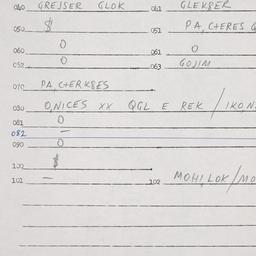 040 GREJSER GLOK 041 GLEKSER
050 $ 051 PA, CTERES
060 0 061 0
052 0 063 GOJIM
070 PA, CTERKSES
080 O, NICES XX QGL E REK / IKO,N
081 0
082 —
090 0
100 $
101 — 102 MOHI, LOK/MO